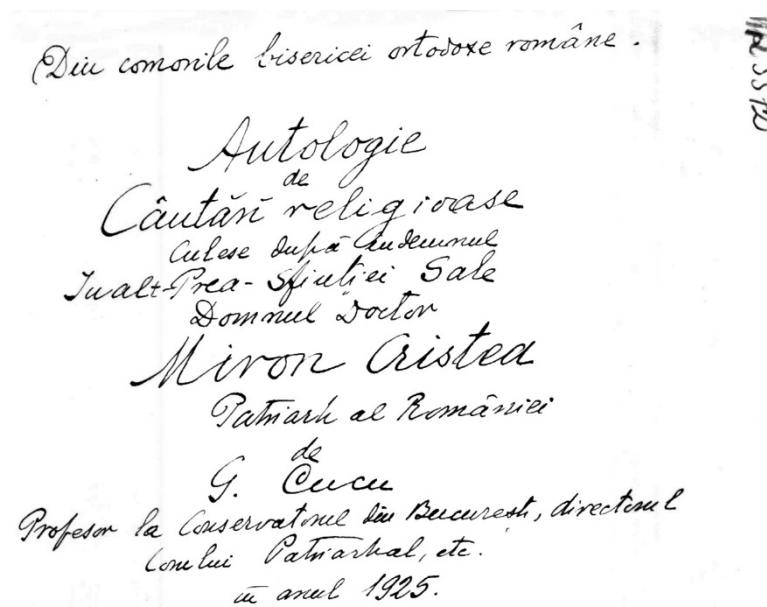 Din comorile bisericei ortodoxe române.
Antologie
de
Cântări religioase
culese după îndemnul
Inalt-Prea-Sfinției Sale
Domnul Doctor
Miron Cristea
Patriarh al României
de
G. Cucu
Profesor la Conservatorul din București, directorul
Corului Patriarhal, etc.
în anul 1925.